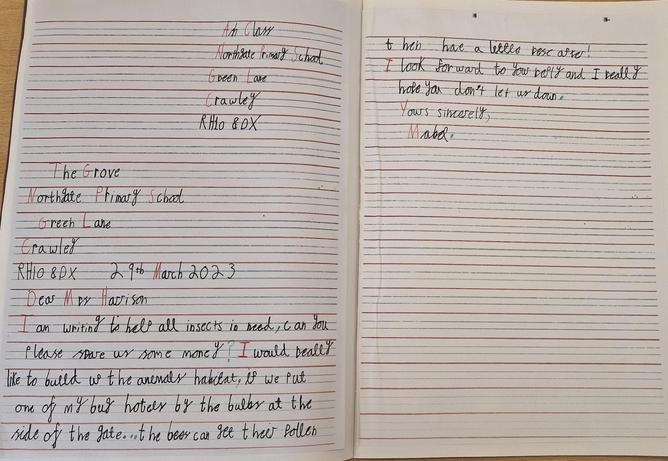 Ash Class
Northgate Primary School
Green Lane
Crawley
RH10 8DX
The Grove
Northgate Primary School
Green Lane
Crawley
RH10 8DX 29th March 2023
Dear Mrs Harrison
I am writing to help all insects in need, can you
please spare us some money? I would really
like to build up the animals habitat, if we put
one of my bug hotels by the bulbs at the
side of the gate...the bees can get their pollen
then have a little rose after!
I look forward to your reply and I really
hope you don't let us down.
Yours sincerely,
Mabel.